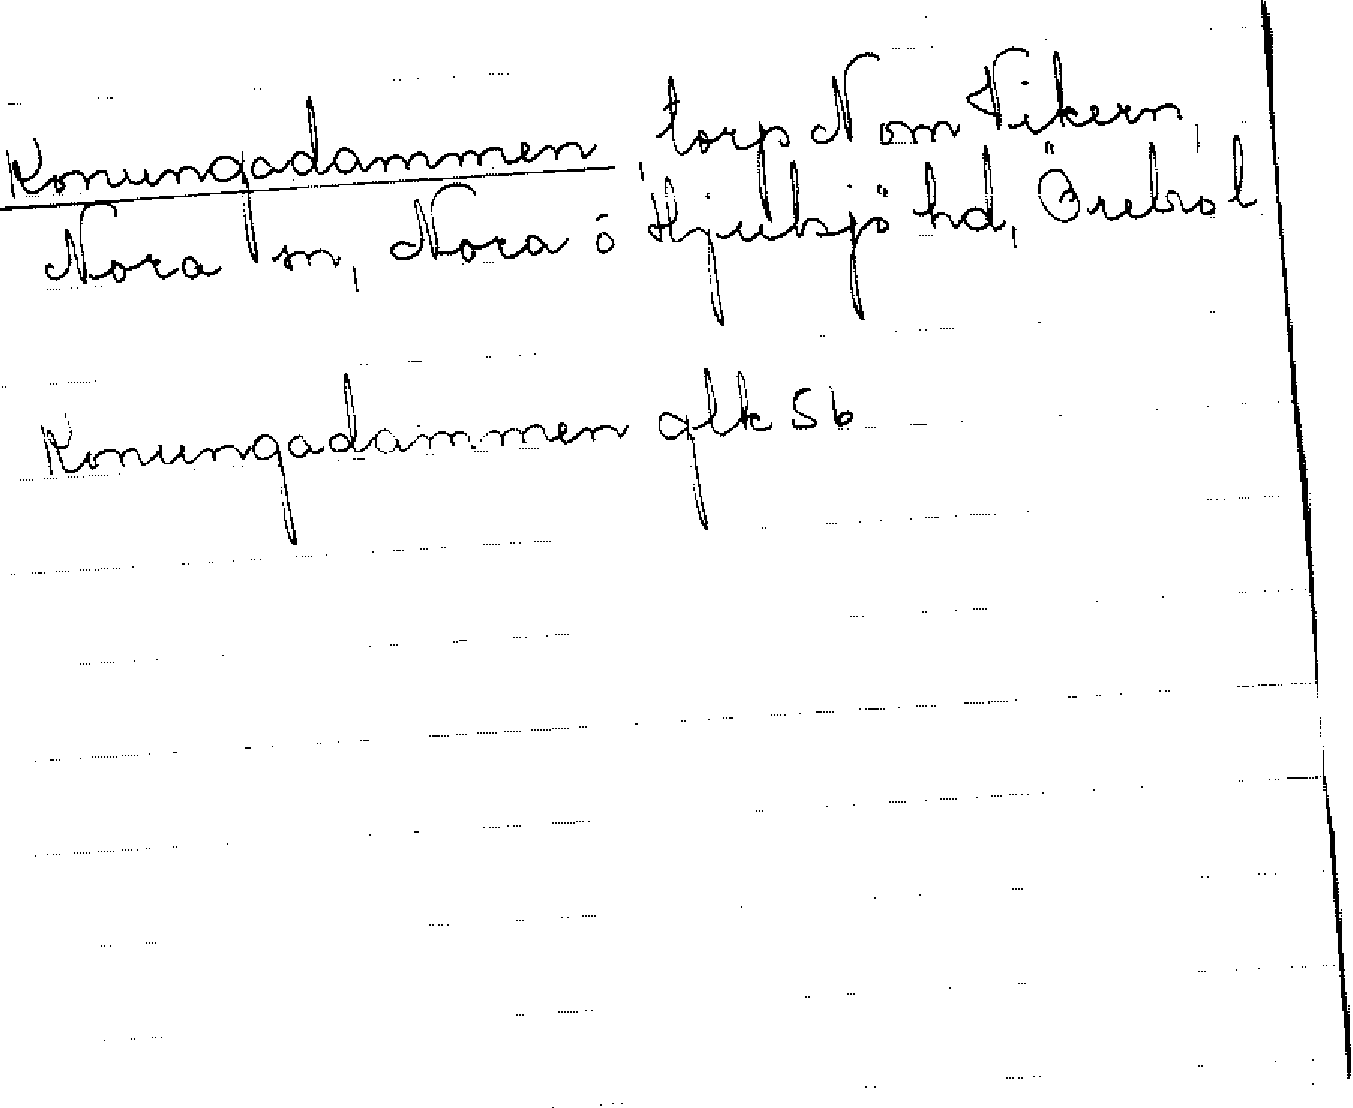 Konungadammen torp N om Vikern,
Nora sn, Nora o Hjulsjö hd, Örebro l
Konungadammen glk 56